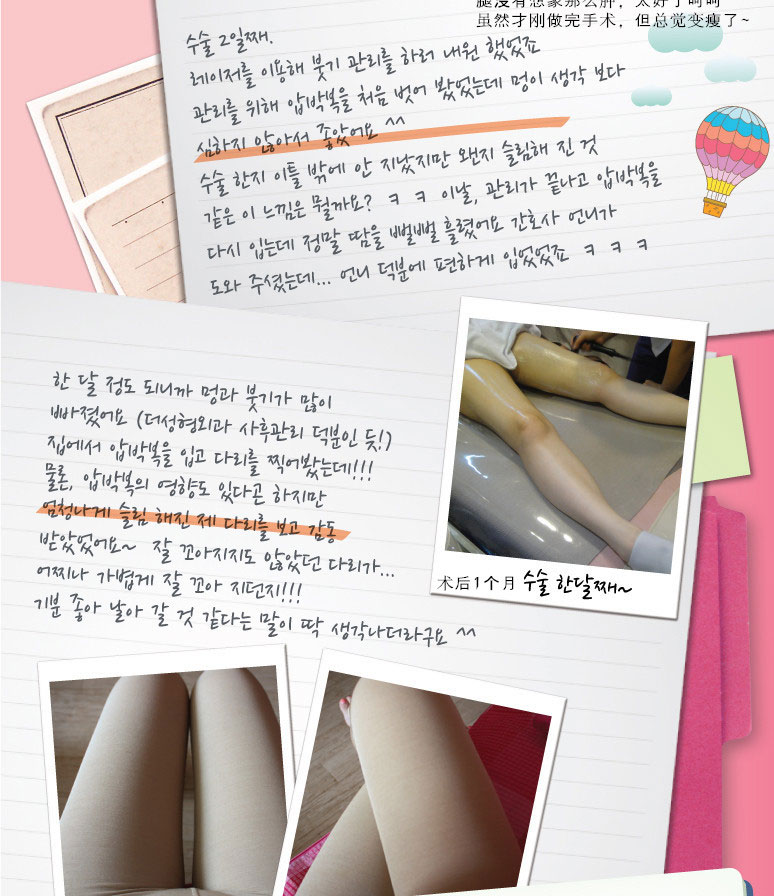 腿没有想象那么肿，太好了呵呵
虽然才刚做完手术，但总觉变瘦了~
수술 2일째.
레이저를 이용해 붓기 관리를 하러 내원 했었죠
관리를 위해 압박복을 처음 벗어 봤었는데 멍이 생각 보다
심하지 않아서 좋았어요 ^^
수술 한지 이틀 밖에 안 지났지만 왠지 슬림해 진 것
같은 이 느낌은 뭘까요? ㅋ ㅋ 이날, 관리가 끝나고 압박복을
다시 입는데 정말 땀을 뻘뻘 흘렸어요 간호사 언니가
도와 주셨는데... 언니 덕분에 편하게 입었었죠 ㅋ ㅋ ㅋ
한 달 정도 되니까 멍과 붓기가 많이
빠졌어요 (더성형외과 사후관리 덕분인 듯!)
집에서 압박복을 입고 다리를 찍어봤는데!!!
물론, 압박복의 영향도 있다곤 하지만
엄청나게 슬림 해진 제 다리를 보고 감동
받았었어요~ 잘 꼬아지지도 않았던 다리가...
어찌나 가볍게 잘 꼬아 지던지!!!
기분 좋아 날아 갈 것 같다는 말이 딱 생각나더라구요 ^^
术后1个月 수술 한달째~